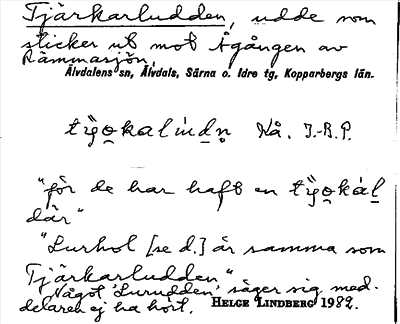 Tjärkarludden, udde som
sticker ut mot Ågången av
Rämmasjön.
Älvdalens sn, Älvdals, Särna o. Idre tg, Kopparbergs län.
Nå. J.-B.P.
"för de har haft en
där"
"Lurhol [se d.] är samma som
Tjärkarludden."
Något 'Lurudden' säger sig med-
delaren ej ha hört.
HELGE LINDBERG 1982.